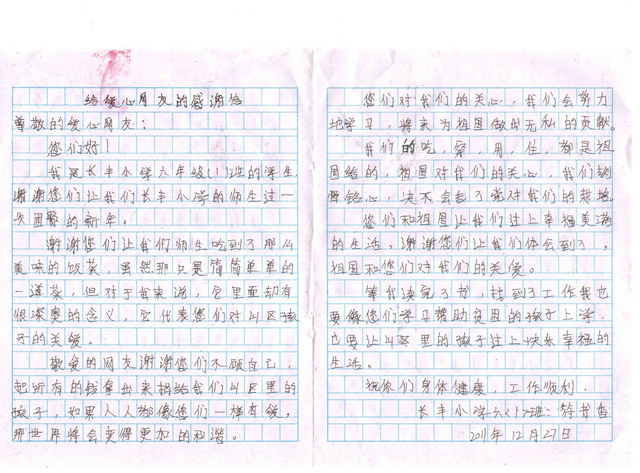 给爱心网友的感谢信
尊敬的爱心网友:
您们好!
我是长丰小学六年级(1)班的学生,
谢谢您们让我们长丰小学的师生过一
次团聚的新年。
谢谢您们让我们师生吃到了那么
美味的饭菜。虽然那只是简简单单的
一道菜,但对于我来说,它里面却有
很深奥的含义,它代表您们对山区孩
子的关爱。
敬爱的网友谢谢您们不顾自己,
把所有的钱拿出来捐给我们山区里的
孩子,如果人人都像您们一样有爱,
那世界将会变得更加的和谐。
您们对我们的关心,我们会努力
地学习,将来为祖国做出无私的贡献。
我们的吃,穿,用,住,都是祖
国给的,祖国对我们的关心,我们刻
骨铭心,决不会忘了党对我们的栽培。
您们和祖国让我们过上幸福美满
的生活,谢谢您们让我们体会到了,
祖国和您们对我们的关爱。
等我读完了书,找到了工作我也
要像您们学习帮助贫困的孩子上学,
也要让山区里的孩子过上快乐幸福的
生活。
祝你们身体健康,工作顺利。
长丰小学六(1)班:
2011年12月27日